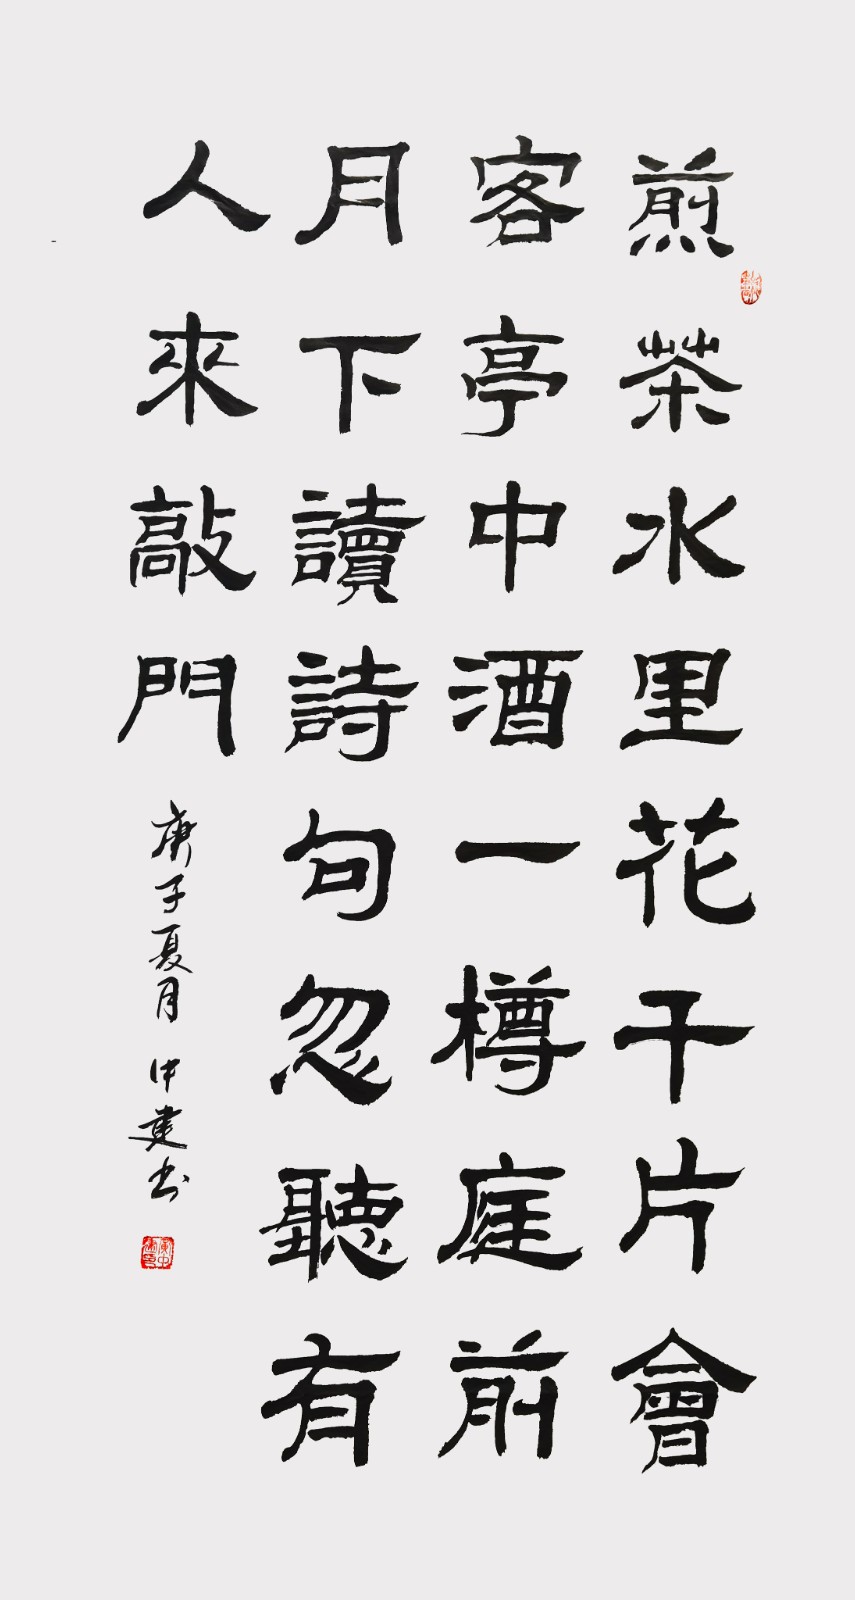 煎茶水里花千片會
客亭中酒一樽庭前
月下讀詩句忽聽有
人來敲門
庚子夏月中建书